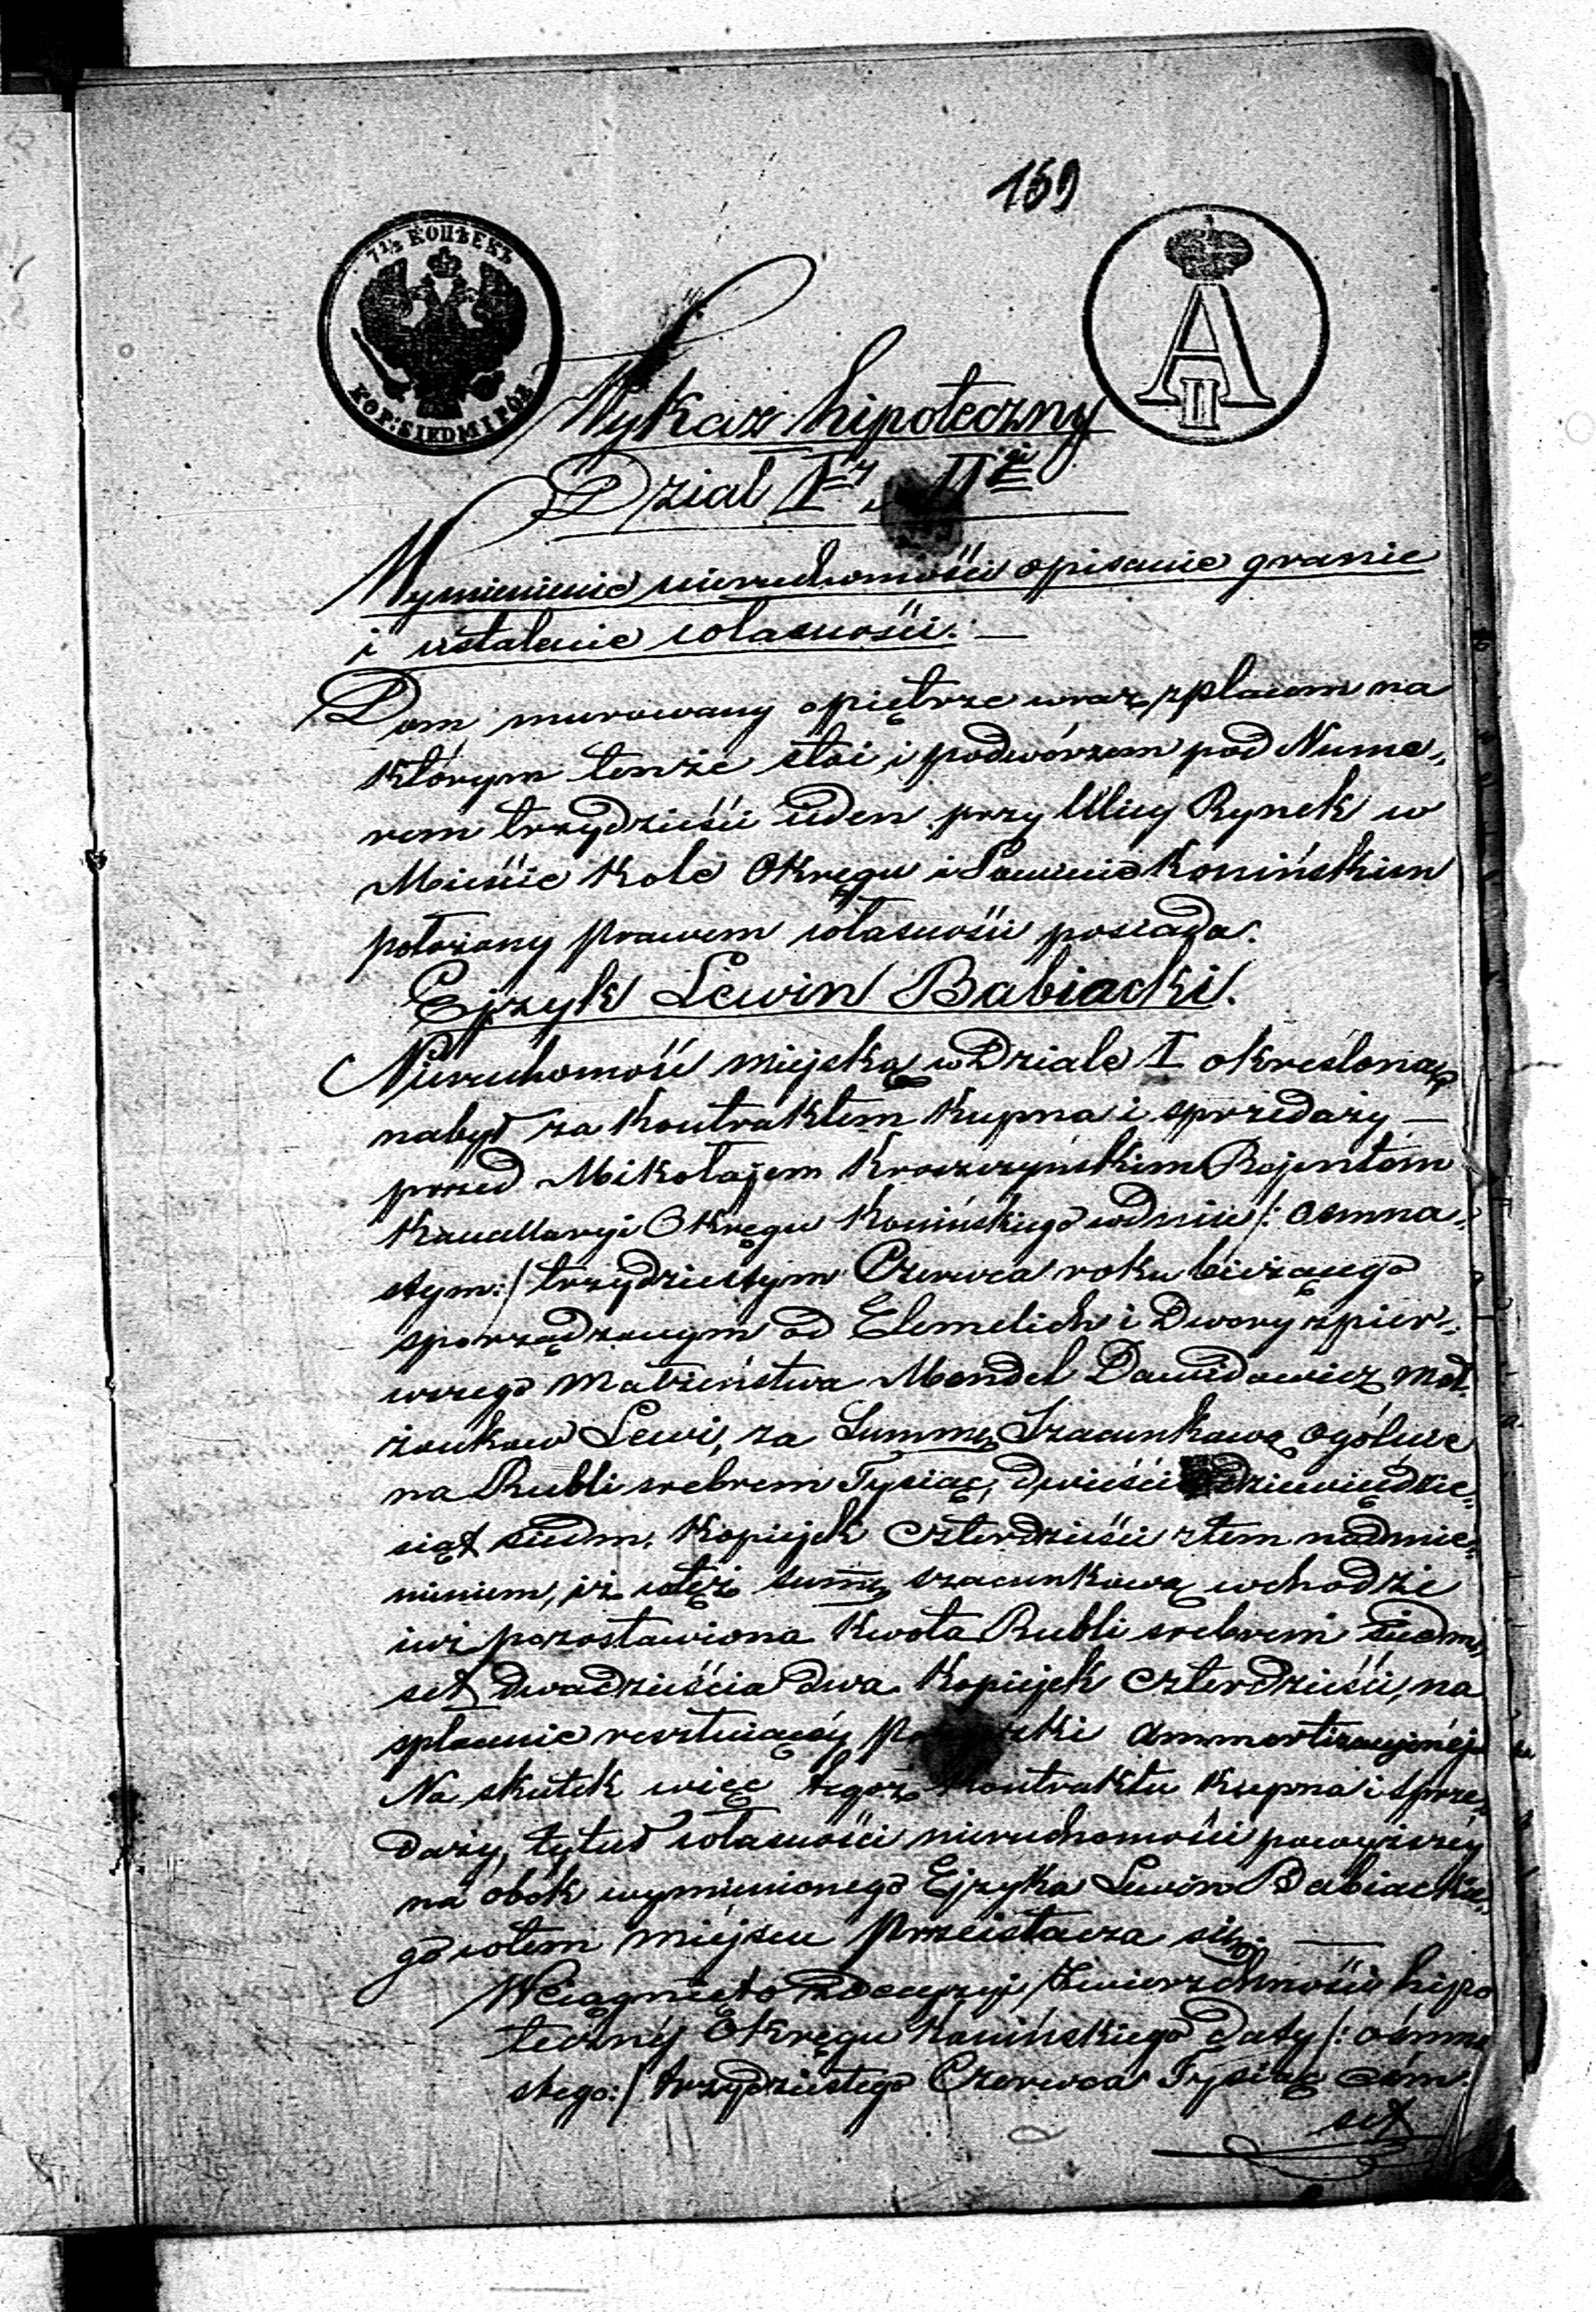 159
7½ КОПѢЕКЪ
KOP: SIEDM I PÓŁ
A II
Wykaz hipoteczny
Dział Iszy i IIgi
Wymienienie nieruchomości opisanie granic
i ustalenie własności. —
Dom murowany o piętrze wraz z placem na
którym tenże stoi, i podwórzem pod Nume„
rem trzydzieści ieden przy Ulicy Rynek w
Mieście Kole Okręgu i Powiecie Konińskim
położony prawem własności posiada.
Ejzyk Lewin Babiacki.
Nieruchomość miejską w Dziale I określoną
nabył za Kontraktem Kupna i sprzedaży —
przed Mikołajem Rejentem
Kancellaryi Okręgu Konińskiego w dniu /: osmna„
stym :/ trzydziestym Czerwca roku bieżącego
sporządzonym od Elemelich i Dwory z pier„
wszego małżeństwa Mendel Dawidowicz mał„
żonków Lewi, za Summę Szacunkową ogólną
na Rubli srebrem Tysiąc, dwieście dziewięćdzie„
siąt siedm, Kopiejek czterdzieści z tem nadmie„
nieniem, iż w tęż summę szacunkową wchodzi
iuż pozostawiona Kwota Rubli srebrem siedm„
set dwadzieścia dwa Kopiejek czterdzieści, na
spłacenie resztuiącéy Ammortizacyjnéj.
Na skutek więc tegoż Kontraktu Kupna i sprze„
daży, tytuł własności nieruchomości powyższéy
na obok wymienionego Ejzyka Lewin Babiackie„
go w tem miejscu przeistacza się. —
Wciągnięto z decyzyi Zwierzchności hipo
tecznéj Okręgu Konińskiego daty /: ośmna
stego :/ trzydziestego Czerwca Tysiąc ośm„
set